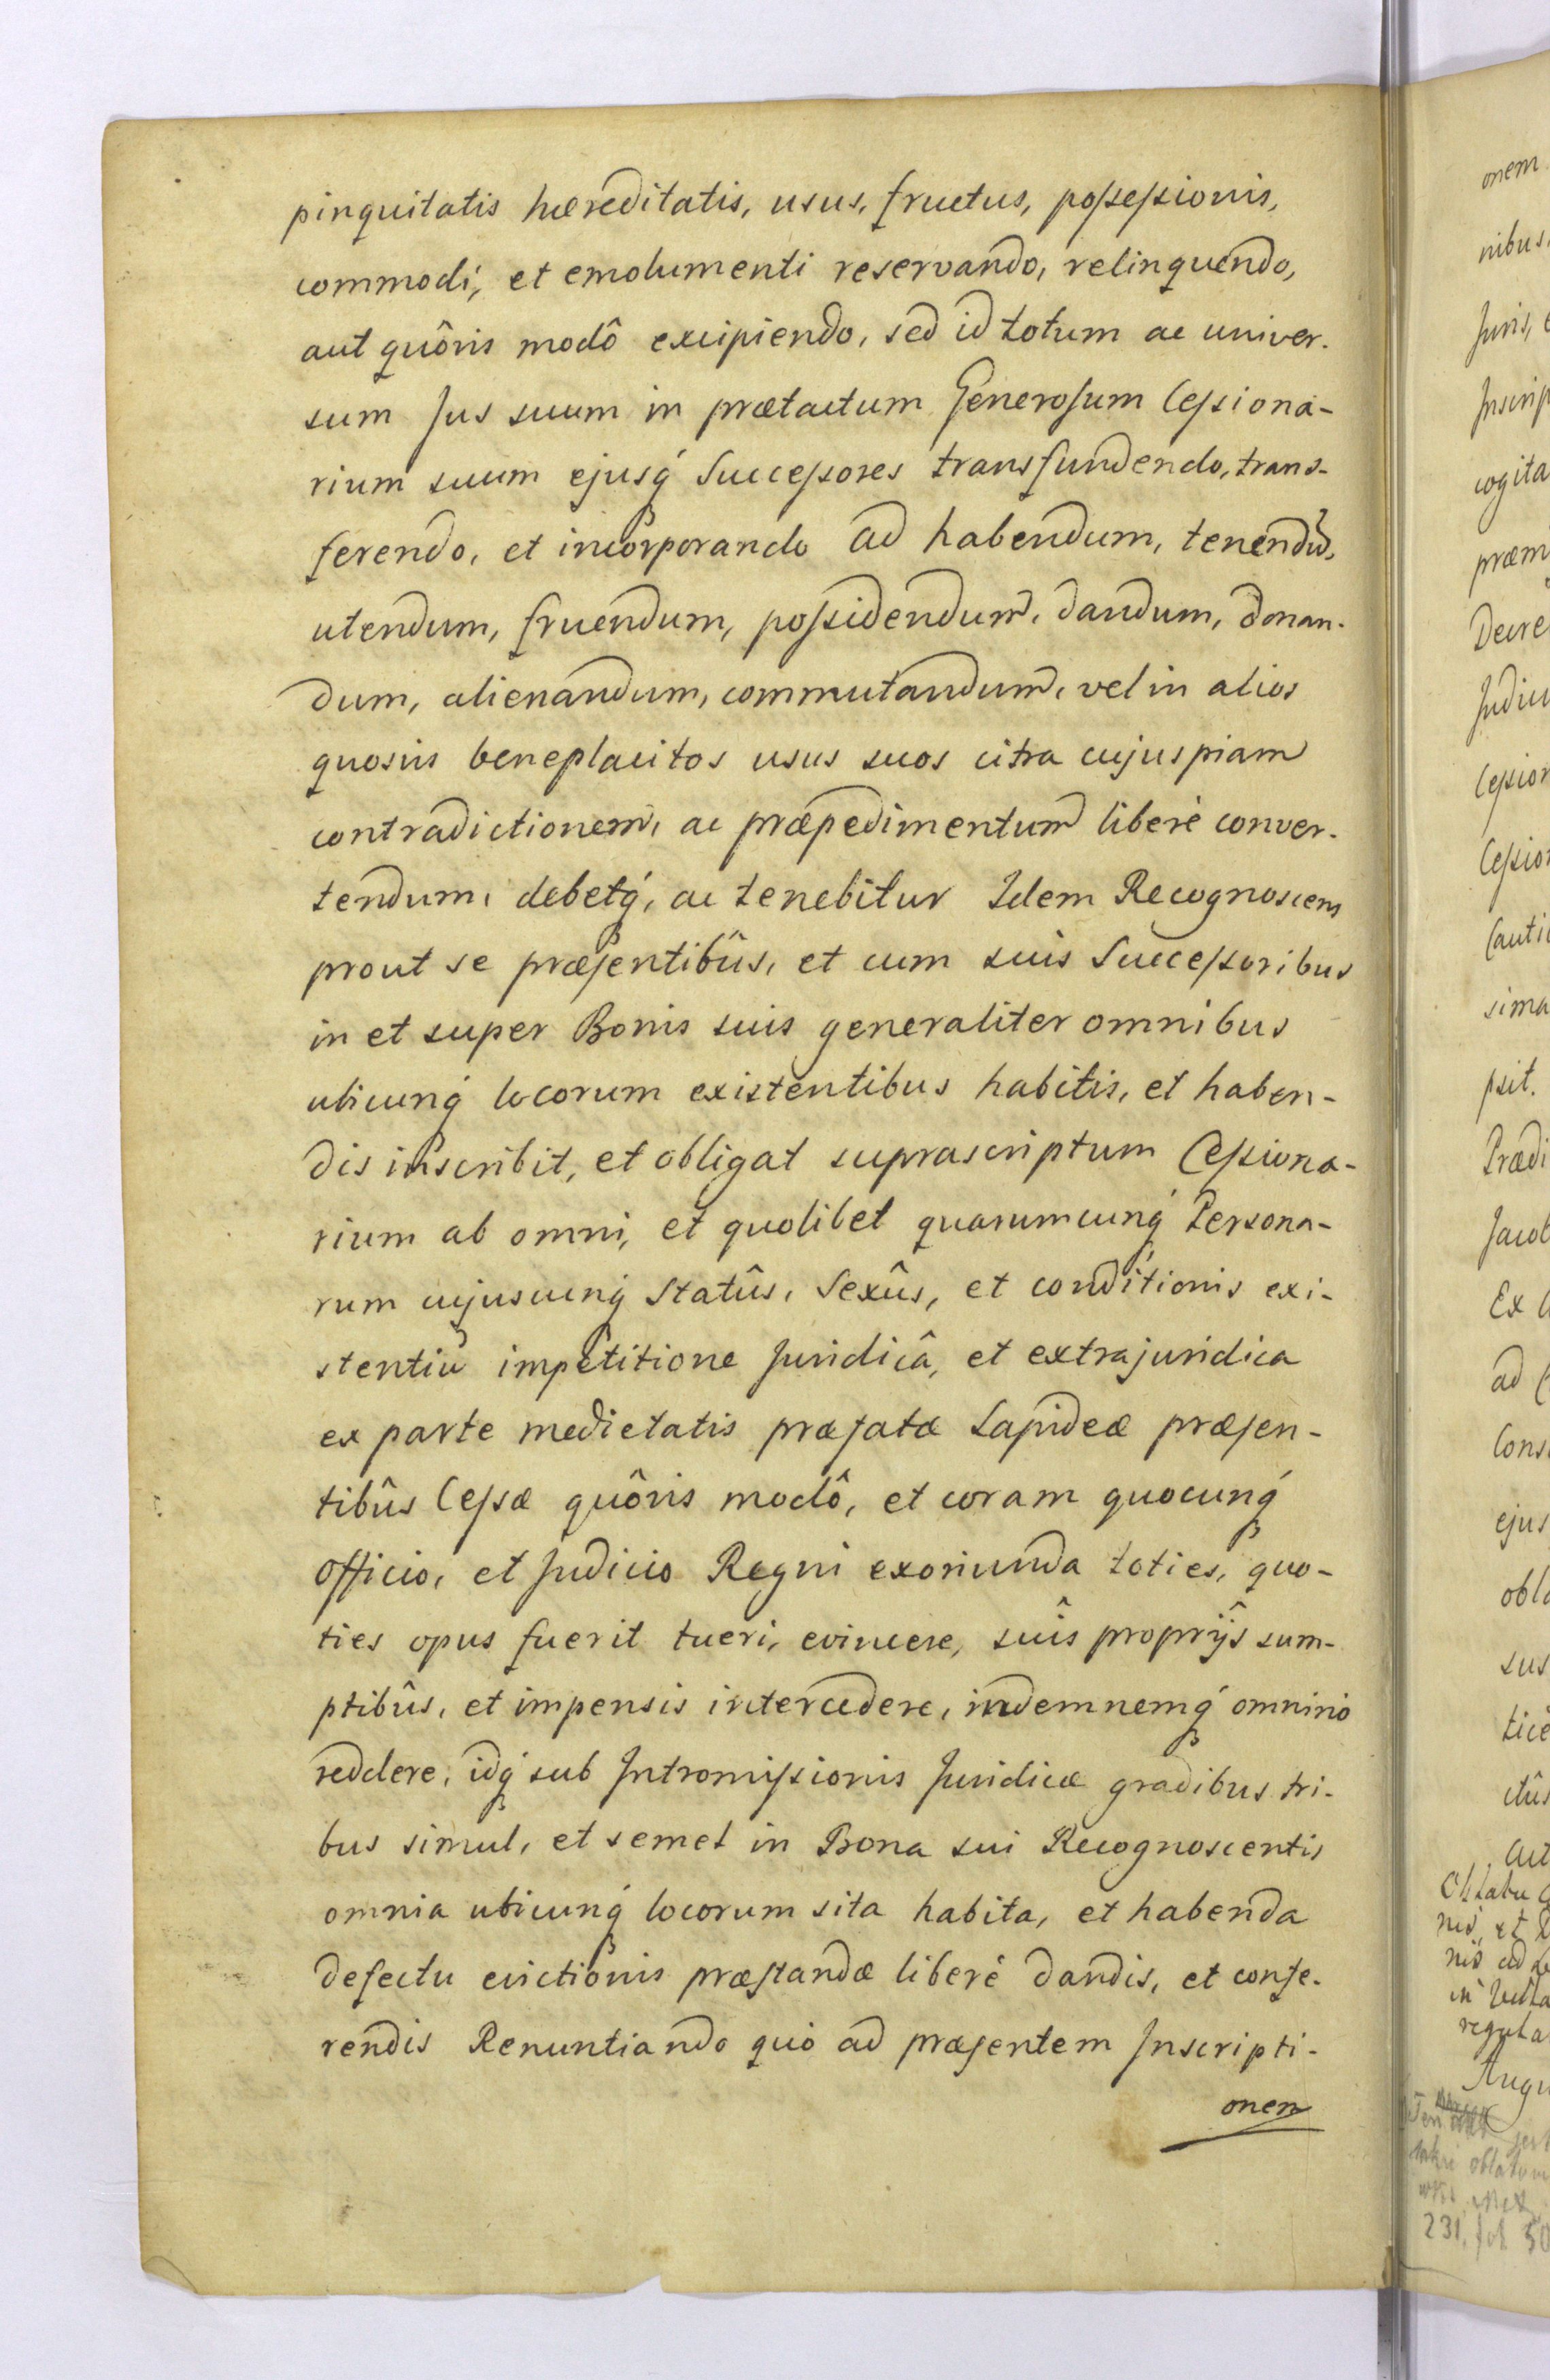 pinguitatis hæreditatis, usus, fructus, possessionis,
commodi, et emolumenti reservando, relinquendo,
aut quôvis modô excipiendo, sed id totum ac univer-
sum Jus suum in prætactum Generosum Cessiona-
rium suum ejusq́ Successores transfundendo, trans-
ferendo, et incorporando ad habendum, tenendũ,
utendum, fruendum, possidendum, dandum, donan-
dum, alienandum, commutandum, vel in alios
quosvis beneplacitos usus suos citra cujuspiam
contradictionem, ac præpedimentum liberè conver-
tendum, debetq́, ac tenebitur Idem Recognoscens
prout se præsentibûs, et cum suis Successoribus
in et super Bonis suis generaliter omnibus
ubicunq́ locorum existentibus habitis, et haben-
dis inscribit, et obligat suprascriptum Cessiona-
rium ab omni, et quolibet quarumcunq́ Persona-
rum cujuscunq́ Statûs, Sexûs, et conditionis exi-
stentiũ impetitione Juridicâ, et extrajuridica
ex parte medietatis præfatæ Lapideæ præsen-
tibûs Cessæ quôvis modô, et coram quocunq́
Officio, et Judicio Regni exoriunda toties, quo-
ties opus fuerit tueri, evincere, suîs propriĵs sum-
ptibûs, et impensis intercedere, indemnemq́ omnino
reddere, idq́ sub Intromissionis Juridicæ gradibus tri-
bus simul, et semel in Bona sui Recognoscentis
omnia ubicunq́ locorum sita habita, et habenda
defectu evictionis præstandæ liberè dandis, et confe-
rendis Renuntiando quò ad præsentem Inscripti-
onem
onem
nibus,
Juris,
Inscrip
cogita
præm
Decre
Judici
Cession
Cession
Cauti
sima
psit.
Prædi
Jacob
Ex
ad
Cons
ejus
obla
sus
ticè
ctûs
oblatum
231. fol. 50